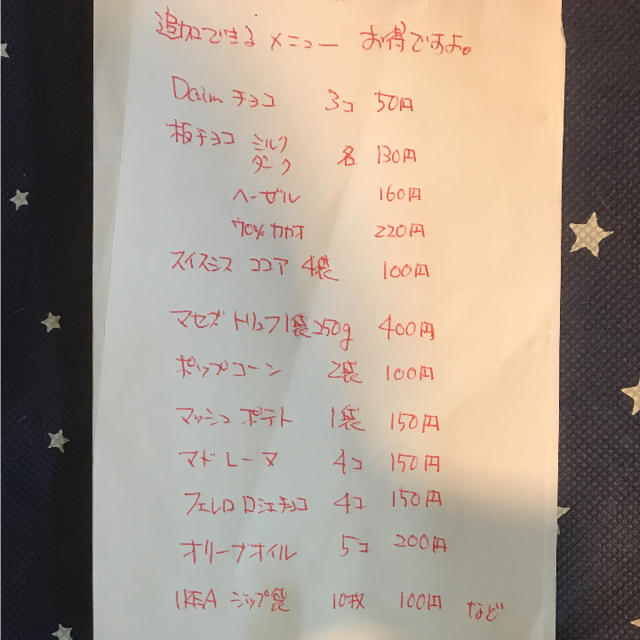 追加できるメニュー お得ですよ。
Daimチョコ 3コ 50円
板チョコ ミルク
ダーク 各 130円
ヘーゼル 160円
70%カカオ 220円
スイスミス ココア 4袋 100円
マセズ トリュフ 1袋 250g 400円
ポップコーン 2袋 100円
マッシュポテト 1袋 150円
マドレーヌ 4コ 150円
フェレロ ロシェチョコ 4コ 150円
オリーブオイル 5コ 200円
IKEA ジップ袋 10枚 100円 など